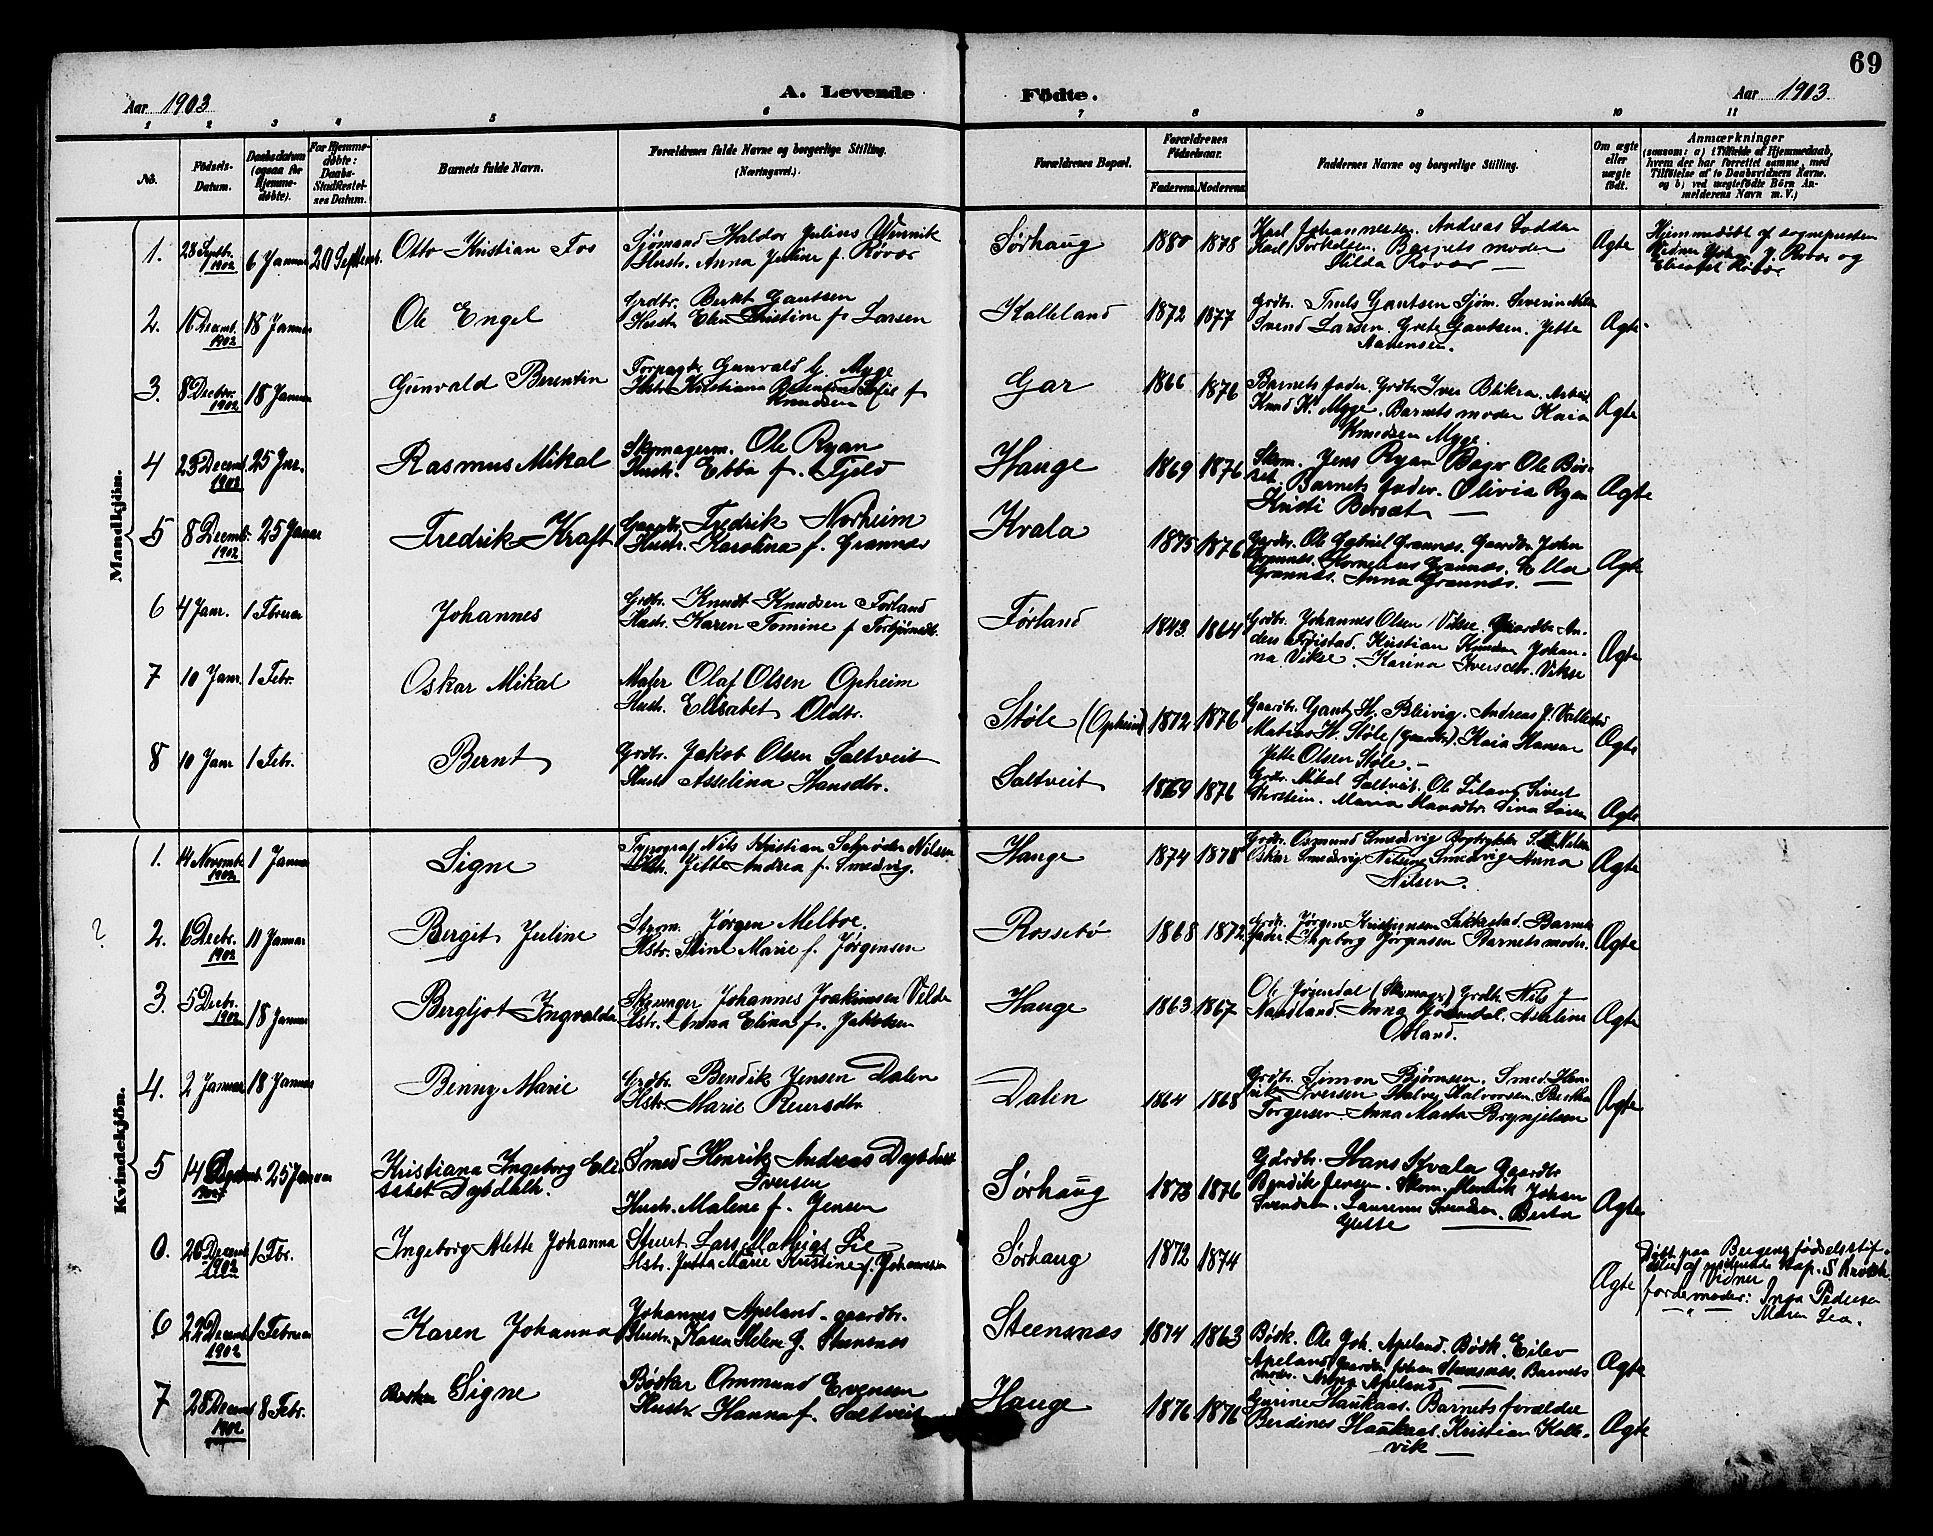 69
Aar 1903
A. Levende
Födte.
Aar 1903.
1 2 3 4 5 6 7 8 9 10 11
No.
Födsels-
Datum.
Daabsdatum
(ogsaa for
Hjemme-
døbte).
For Hjemme-
døbte:
Daabs-
Stadfæstel-
ses Datum.
Barnets fulde Navn.
Forældrenes fulde Navne og borgerlige Stilling.
(Næringsvei.)
Forældrenes Bopæl.
Forældrenes
Födselsaar.
Faderens. Moderens.
Faddernes Navne og borgerlige Stilling.
Om ægte
eller
uægte
født.
Anmærkninger
(saasom: a) i Tilfælde af Hjemmedaab,
hvem der har forrettet samme, med
Tilføielse af to Daabsvidners Navne.
og b) ved uægtefødte Börn An-
melderens Navn m. V.)
Mandkjön.
1. 28 Septbr. 1902 6 Januar 20 Septemb. Otto Kristian Fos
Sjömand Haldor Julius Winnik
Hustr. Anna Juline f. Røvær
Sørhaug 1880 1878
Karl Johannessen. Andreas Lodden
Karl Torkelsen. Barnets moder
Hilda Røvær —
Ægte
Hjemmedøbt af sognepresten
Elisabet Røvær
2. 16 Decemb. 1902 18 Januar Ole Engel
Grdbr. Berkt Gautsen
Hustr. Elen Kristine f. Larsen
Kalleland 1872 1877
Grdbr. Truls Gautsen Sjöm. Severin
Svend Larsen. Grete Gautsen. Jette
Aanensen.
Ægte
3. 8 Decbr. 1902 18 Januar Gunvald Berentin
Forpagtr. Gunvald G. Myge
Hstr. Kristiana f
Knudsen
Gar 1866 1876
Barnets fader. Grdbr Iver Blikra. Arbeid.
Knud K. Myge. Barnets moder Kaia
Knudsen Myge.
Ægte
4 23 Decemb. 1902 25 Jnr. Rasmus Mikal
Skomagerm. Ole Ryan
Hustr. Ebba f. Fjeld
Hauge 1869 1876
Skom. Jens Ryan Bager Ole Bør-
set. Barnets fader. Olivia Ryan
Kristi Børset —
Ægte
5 8 Decemb. 1902 25 Januar Fredrik Kraft
Gaardbr. Fredrik Norheim
Hustr. Karolina f. Grannæs
Kvala 1875 1876
Gardbr. Ole Gabriel Grannæs. Gaardbr. John
Grannæs. Kornelius Grannæs. Ella
Grannæs. Anna Grannæs. —
Ægte
6 4 Janr. 1 Februar Johannes
Grdbr. Knudt Knudsen Førland
Hustr. Karen Tomine f Torbjörnsdtr.
Førland 1843 1864
Grdbr. Johannes Olsen Vikse. Gaardbr. An-
ders Frøistad. Kristian Knudsen Johan-
na Vikse. Karina Iversdtr. Vikse
Ægte
7 10 Janr. 1 Febr. Oskar Mikal
Maler Olaf Olsen Opheim
Hustr. Elisabet Oldtr.
Støle (Opheim) 1872 1876
Gaardbr. Gaut H. Bleivig. Andreas J. Vallestad
Matias H. Støle (Gaardbr). Kaia Hansen
Jette Olsen Støle. —
Ægte
8 10 Janr 1 Febr. Bernt
Grdbr. Jakob Olsen Saltveit
Hustr Asselina Hansdtr.
Saltveit 1869 1876
Grdbr. Mikal Saltveit. Ole Eiland Sivert
Maria Hansdtr. Sina
Ægte
Kvindekjön.
1. 14 Novemb. 1902 1 Januar Signe
Typograf Nils Kristian Schrøder Nilsen
Hstr. Jette Andrea f. Smedvig.
Hauge 1874 1878
Grdbr. Osmund Smedvig Bogtrykker Nilsen
Oskar Smedvig Nilsine Smedvig Anna
Nilsen.
Ægte
? 2. 6 Decbr. 1902 11 Januar Bergit Juline
Strom. Jørgen Melboe.
Hstr. Stine Marie f. Jørgensen
Rossebø 1868 1872
Grdbr. Jørgen Kristensen Barnets
fader. Ingeborg Jørgensen Barnets moder.
Ægte
3. 5 Decbr. 1902 18 Januar Bergljot Ingvalda
Johannes Joakimsen Velde
Hstr. Anna Elina f. Jakobsen
Hauge 1863 1867
Ole (Skomager) Grdbr. Nils J
Nandland. Anna Aseline
Osland.
Ægte
4. 2 Januar 18 Januar Benny Marie
Grdbr. Bendik Jensen Dalen
Hstr. Marie Reiersdtr.
Dalen 1864 1868
Grdbr. Simon Bjørnsen. Smed. Hen-
rik Iversen Halvor Halvorsen. Bertha
Torgersen Anna Marta Brynjelsen
Ægte
5 14 25 Januar Kristiana Ingeborg Eli-
sabet Dybdahl.
Smed Henrik Andreas Dybdahl
Iversen
Hustr. Malene f. Jensen
Sørhaug 1873 1876
Gårdbr. Hans Kvala Gaardbr
Bendik Jensen. Skom. Henrik Johan
Svendsen. Laurense Svendsen. Berta
Gjette —
Ægte
0. 26 Decemb 1902 1 Fbr. Ingeborg Alette Johanna
Stuert Lars Mathias Lie
Hstr. Jutta Marie Kristine f. Johannesen
Sørhaug 1872 1874
Ægte
Døbt paa Bergens fødselsstif-
telse af residerende Kap. S Brock
Vidner
Jordemoder: Inga Pedersen
— " — Maren Lea.
6 22 Decemb 1902 1 Februar Karen Johanna
Johannes Apeland. gaardbr.
Hustr. Karen Helene G. Steensnæs
Steensnæs 1874 1863
Bødk. Ole Joh. Apeland. Bødk. Eilev
Apeland Gaardbr Johan Steensnæs. Barnets
moder. Anna Apeland —
Ægte
7 28 Decemb 1902 8 Febr. Signe
Bødker Ommund Evensen
Hustr. Hanna f. Saltveit
Hauge 1876 1876
Gurine Haukaas. Barnets forældre
Berdines Haukaas. Kristian Kolle-
vik —
Ægte